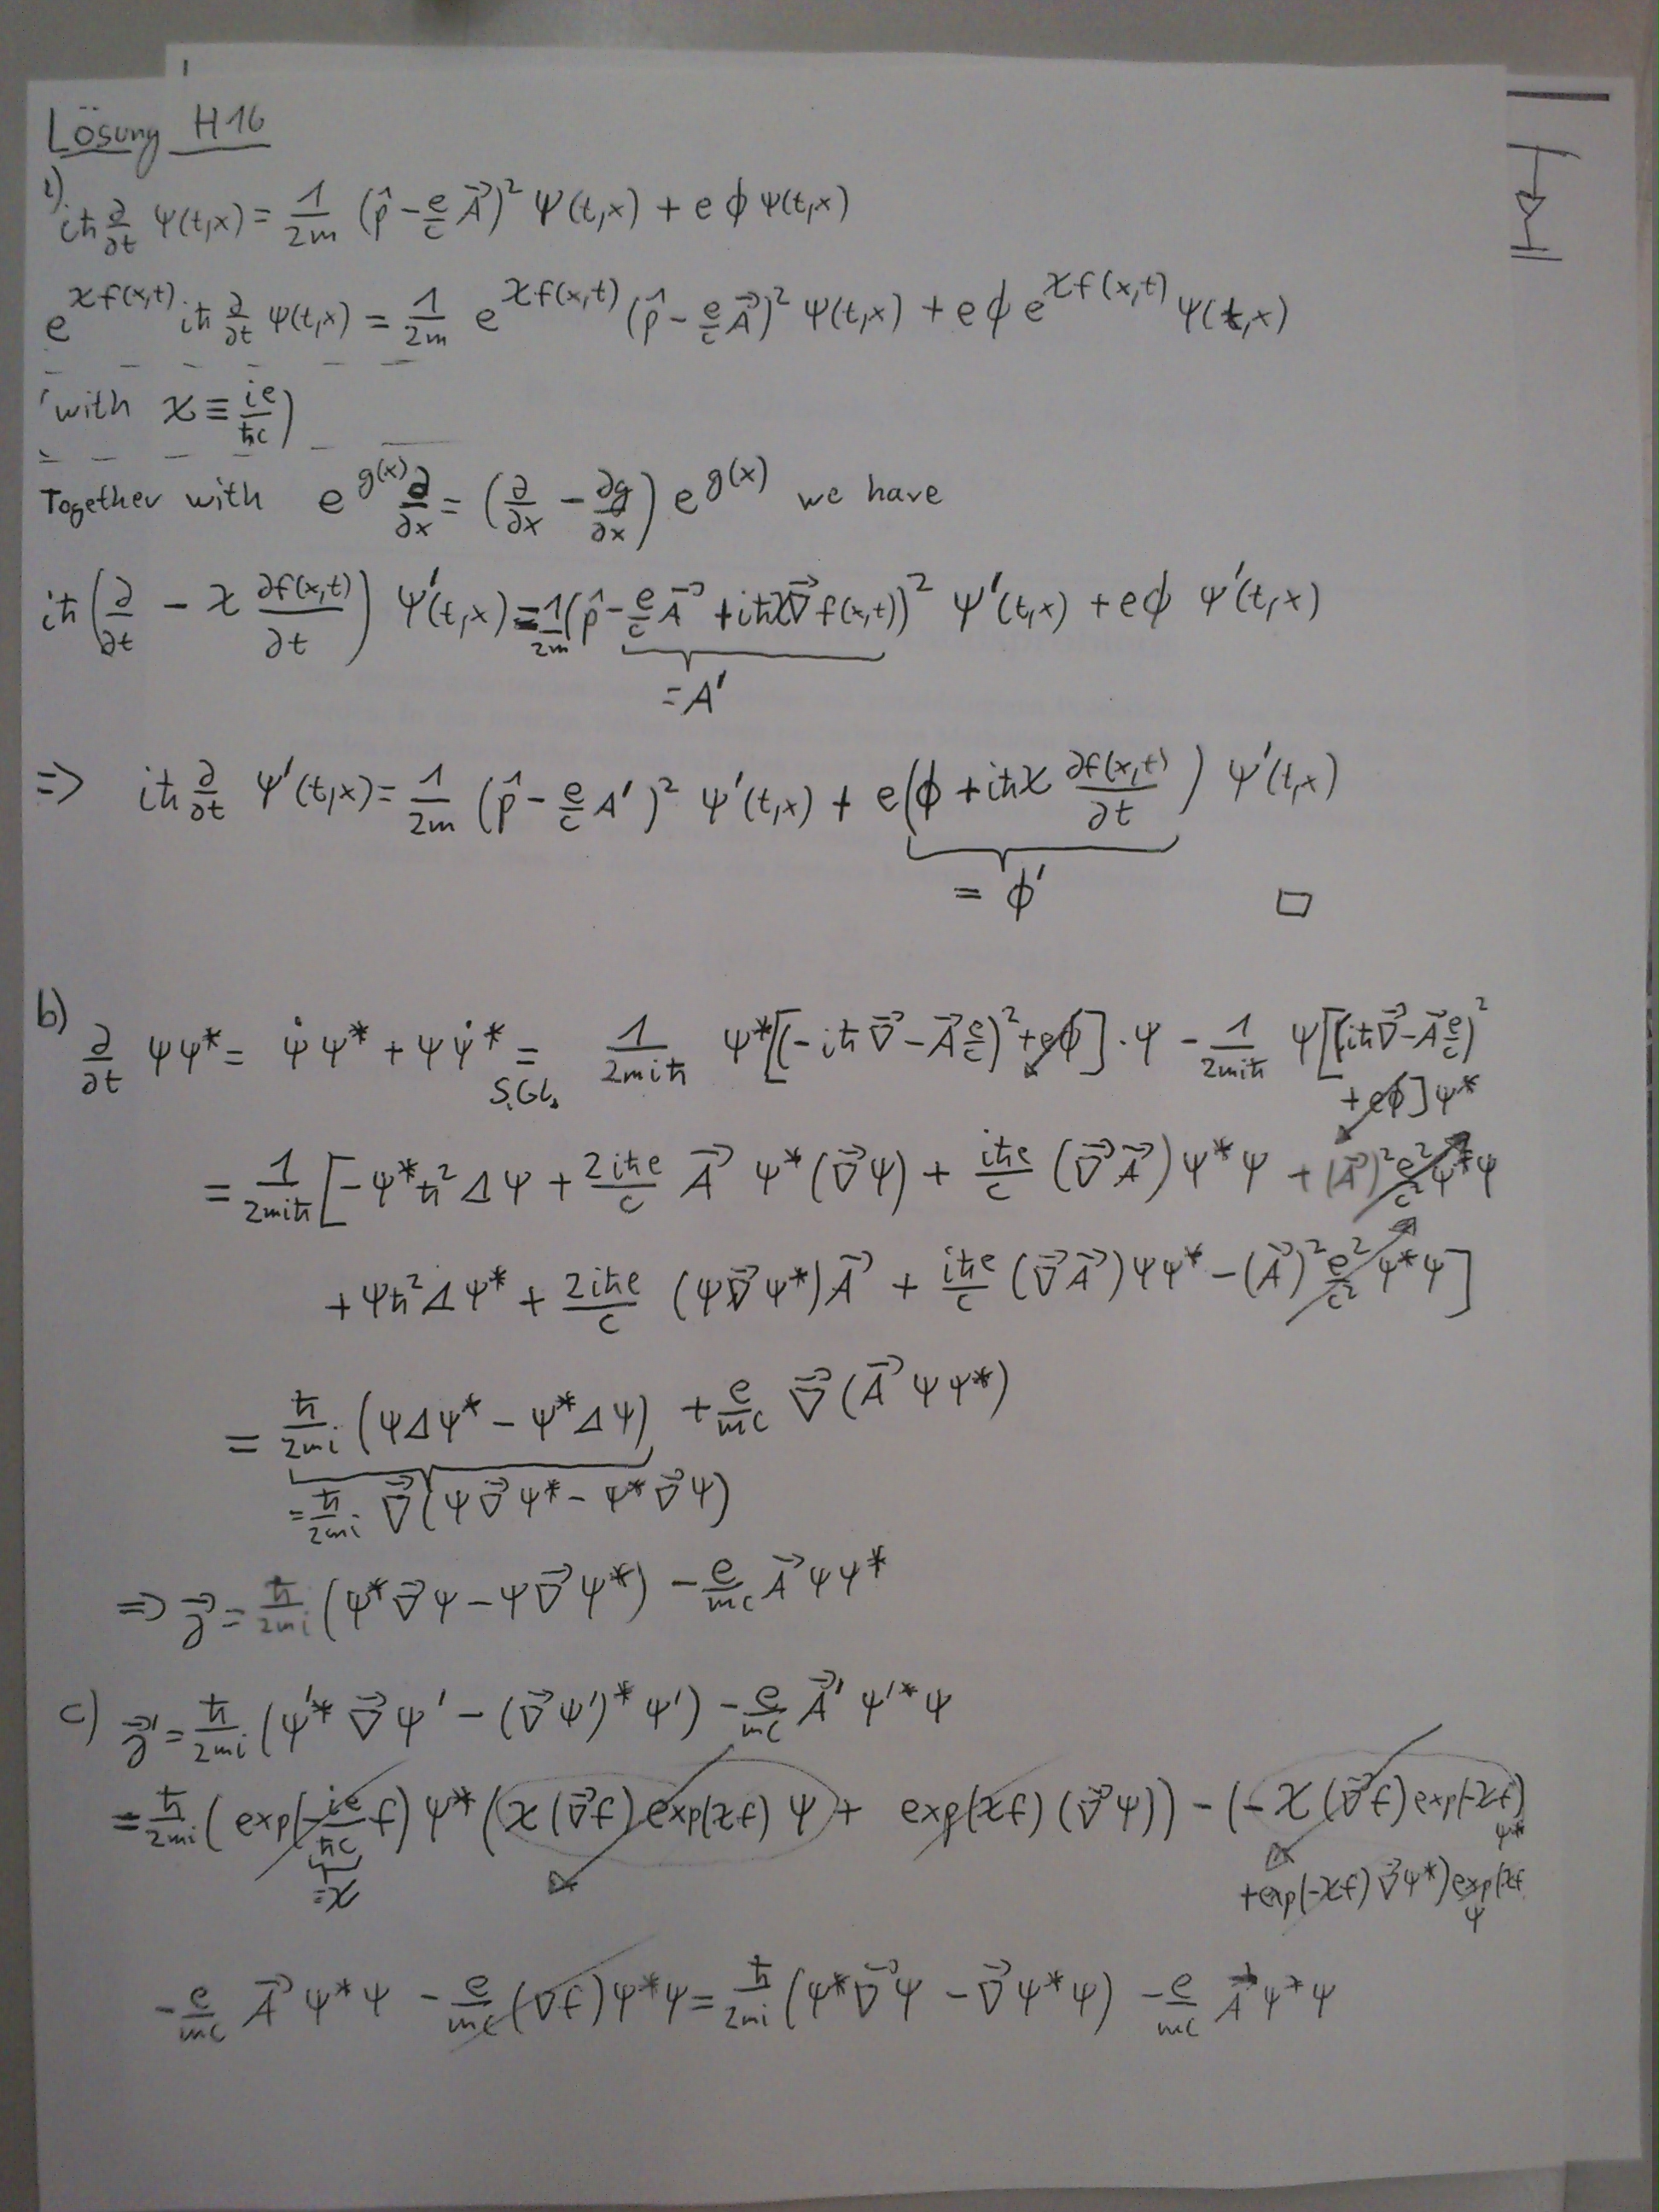 Lösung H16
a) iℏ ∂/∂t ψ(t,x) = 1/2m (p̂ - e/c A⃗)² ψ(t,x) + e ϕ ψ(t,x)
e^{χf(x,t)} iℏ ∂/∂t ψ(t,x) = 1/2m e^{χf(x,t)} (p̂ - e/c A⃗)² ψ(t,x) + e ϕ e^{χf(x,t)} ψ(t,x)
(with χ ≡ ie/ℏc)
Together with e^{g(x)} ∂/∂x = (∂/∂x - ∂g/∂x) e^{g(x)} we have
iℏ (∂/∂t - χ ∂f(x,t)/∂t) ψ'(t,x) = 1/2m (p̂ - e/c A⃗ + iℏχ∇⃗ f(x,t))² ψ'(t,x) + eϕ ψ'(t,x)
= A'
=> iℏ ∂/∂t ψ'(t,x) = 1/2m (p̂ - e/c A')² ψ'(t,x) + e(ϕ + iℏχ ∂f(x,t)/∂t) ψ'(t,x)
= ϕ' □
b) ∂/∂t ψψ* = ψ̇ψ* + ψψ̇* = 1/2miℏ ψ*[(-iℏ∇⃗ - A⃗ e/c)² + eϕ]·ψ - 1/2miℏ ψ[(iℏ∇⃗ - A⃗ e/c)²
S.Gl. + eϕ]ψ*
= 1/2miℏ [-ψ*ℏ²Δψ + 2iℏe/c A⃗ ψ*(∇⃗ψ) + iℏe/c (∇⃗A⃗)ψ*ψ + (A⃗)² e²/c² ψ*ψ
+ ψℏ²Δψ* + 2iℏe/c (ψ∇⃗ψ*)A⃗ + iℏe/c (∇⃗A⃗)ψψ* - (A⃗)² e²/c² ψ*ψ]
= ℏ/2mi (ψΔψ* - ψ*Δψ) + e/mc ∇⃗(A⃗ψψ*)
= ℏ/2mi ∇⃗(ψ∇⃗ψ* - ψ*∇⃗ψ)
=> j⃗ = ℏ/2mi (ψ*∇⃗ψ - ψ∇⃗ψ*) - e/mc A⃗ψψ*
c) j⃗' = ℏ/2mi (ψ'*∇⃗ψ' - (∇⃗ψ')*ψ') - e/mc A⃗' ψ'*ψ
= ℏ/2mi (exp(-ie/ℏc f) ψ*(χ(∇⃗f) exp(χf) ψ + exp(χf)(∇⃗ψ)) - (-χ(∇⃗f) exp(-χf) ψ*
=χ + exp(-χf)∇⃗ψ*) exp(χf ψ
- e/mc A⃗ψ*ψ - e/mc (∇f)ψ*ψ = ℏ/2mi (ψ*∇⃗ψ - ∇⃗ψ*ψ) - e/mc A⃗ψ*ψ